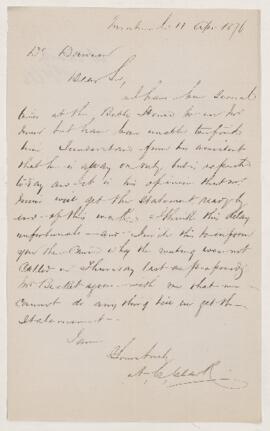 11 Apr 1876
Dr Dawson
Dear Sir,
I have been several
times at the House to see Mr
but have been unable to find
him I understand from his assistant
that he is away on duty but is expected
today and it is his opinion that Mr
will get the Statement ready by
end of this week. I think this delay
unfortunate and this to inform
you the cause why the meeting was not
called on Thursday last as proposed
Mr Becket agrees with me that we
cannot do any thing till we get the
Statement.
I am
Yours truly